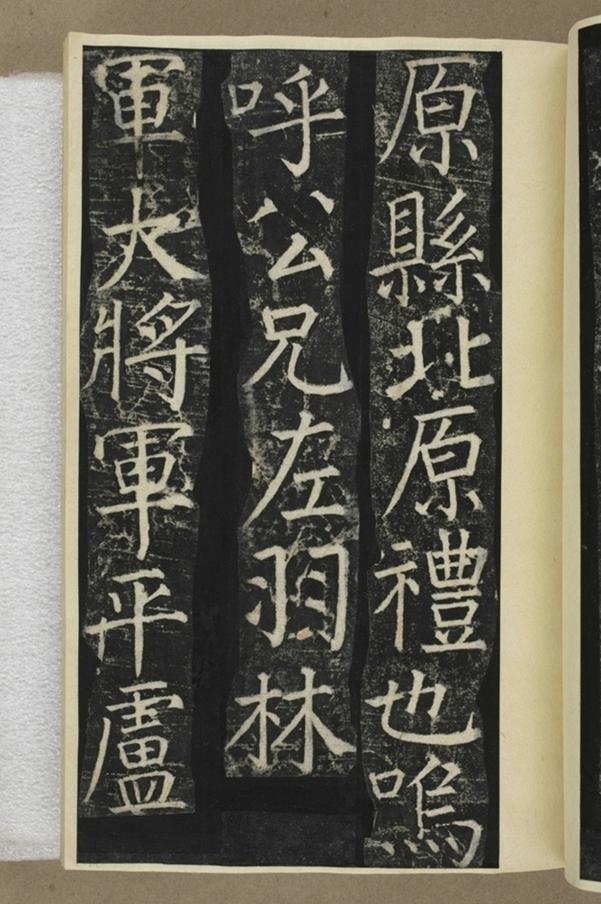 原縣北原禮也嗚
呼公兄左羽林
軍大將軍平盧